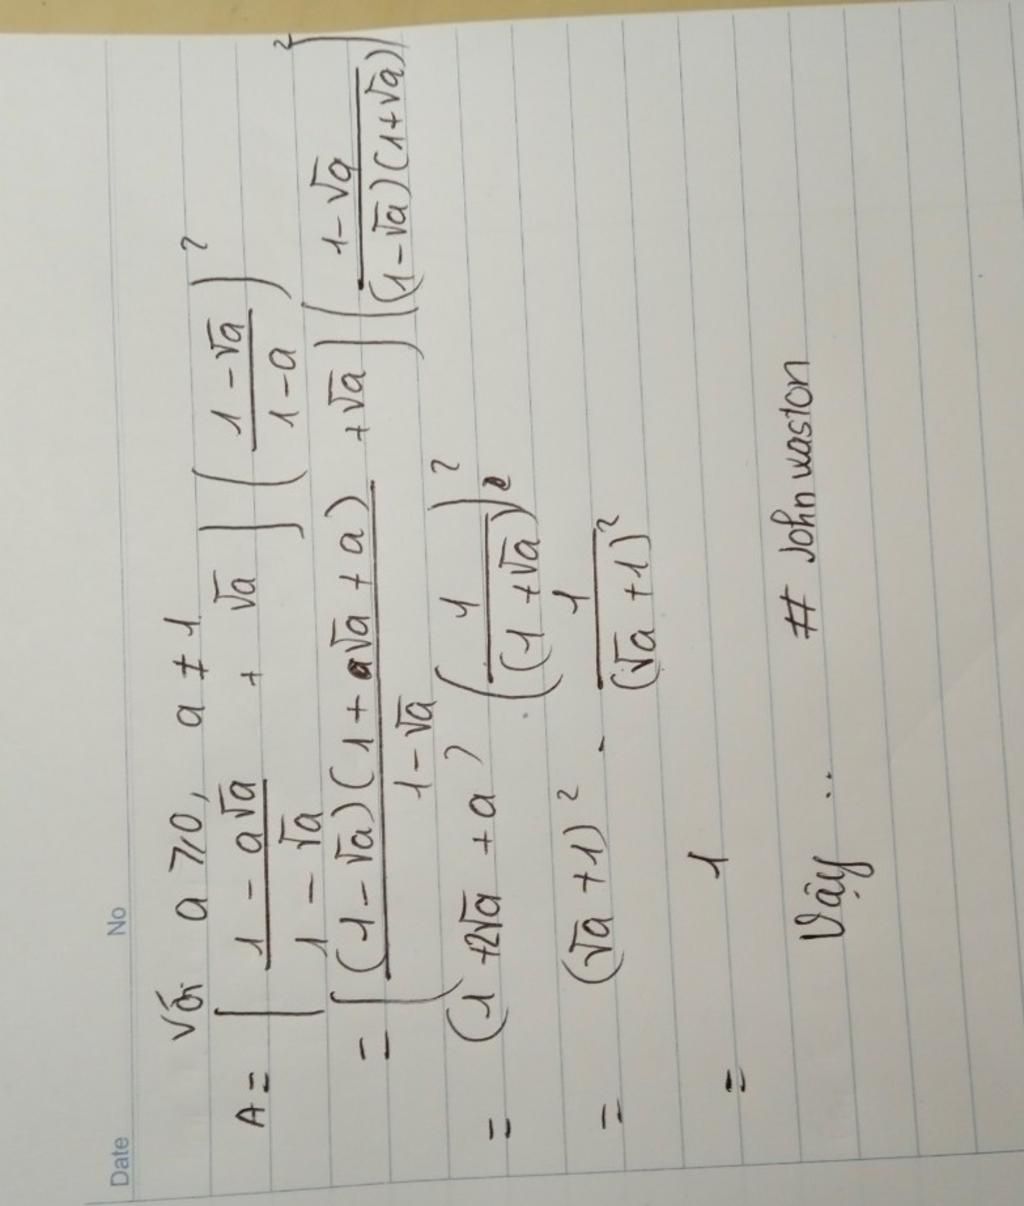 Date No
Với a ≥ 0, a ≠ 1
A = [ (1 - a√a)/(1 - √a) + √a ] ( (1 - √a)/(1 - a) )²
= [ (1 - √a)(1 + a√a + a)/(1 - √a) + √a ] ( (1 - √a)/((1 - √a)(1 + √a)) )²
= (1 + 2√a + a) . ( 1/(1 + √a)² )²
= (√a + 1)² . 1/(√a + 1)²
= 1
Vậy ... # John waston